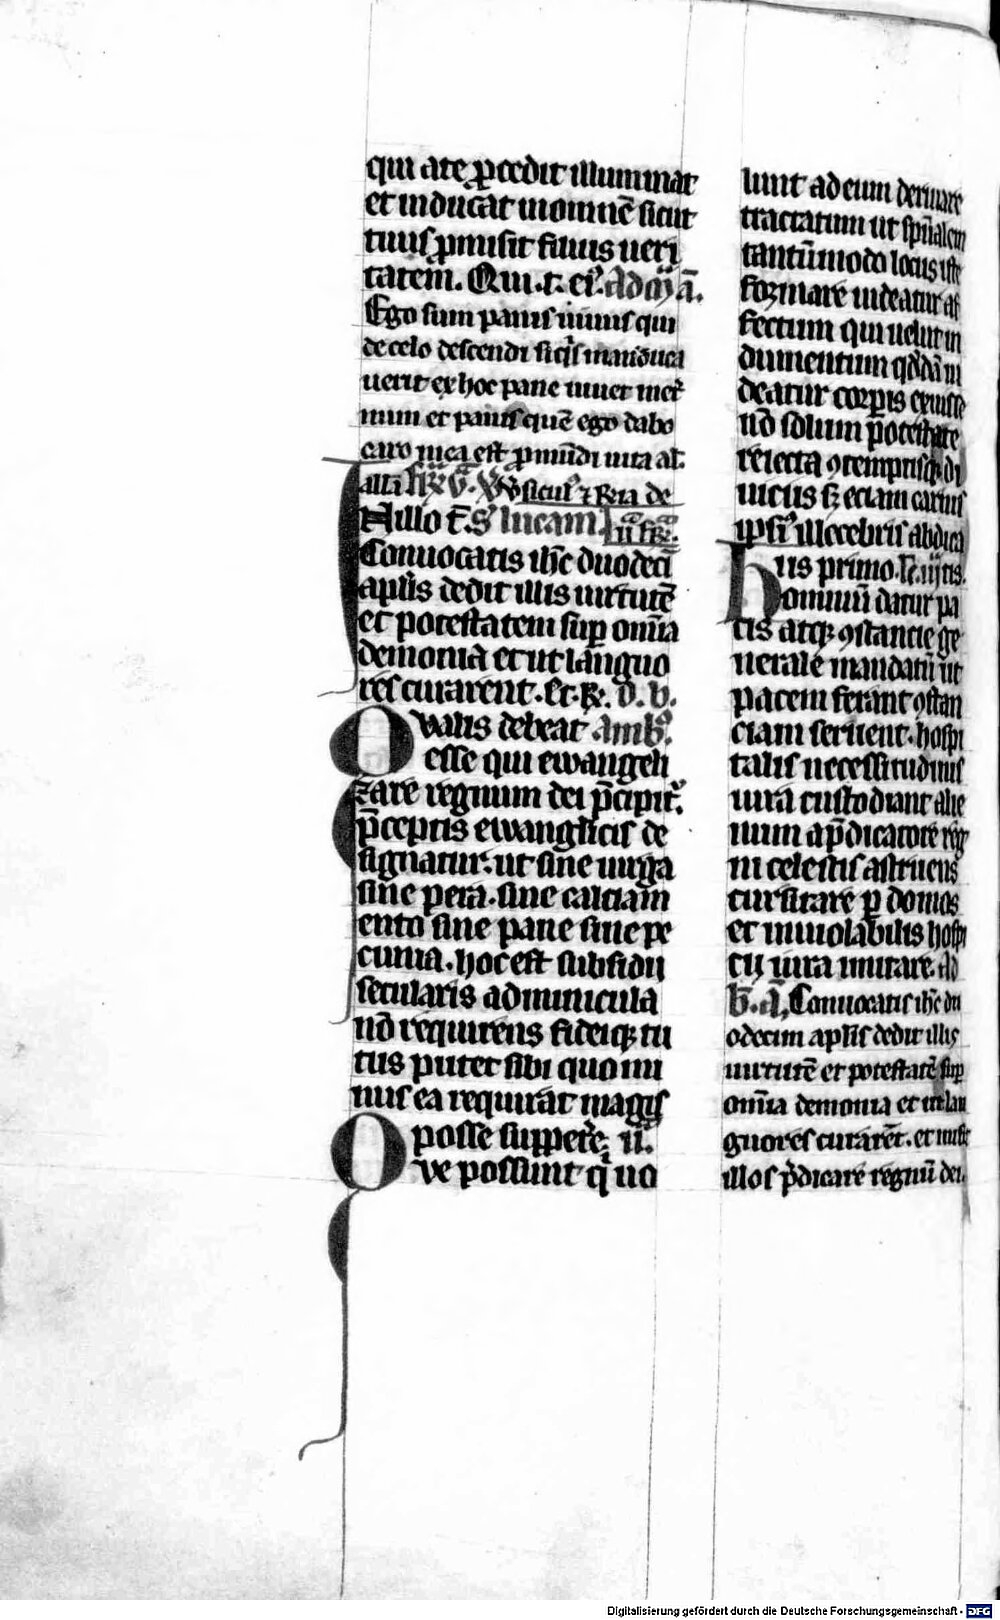 qui a te procedit illuminat
et inducat in omnē sicut
tuus ꝓmisit filius ueri
tatem. Qui. t. ei⁹. Ad
Ego sum panis uiuus qui
de celo descendi siq̄s manduca
uerit ex hoc pane uiuet in et̄
num et panis quē ego dabo
caro mea est ꝓ mūdi uita al
alla
Nillo t̄. S. lucam
Conuocatis ihc̄ duodeci
aplis̄ dedit illis uirtutē
et potestatem suꝑ om̄ia
demonia et ut languo
res curarent. Et. R̄. d. b.
Qvalis debeat Amb⁹.
esse qui ewangeli
zare regnum dei p̄cipit⁹.
p̄ceptis ewanglicis de
signatur. ut sine uirga
sine pera. sine calciam
ento sine pane sine pe
cunia. hoc est subsidii
secularis adminicula
nō requirens fideiqꝫ tu
tus putet sibi quo mi
nus ea requirat magis
posse suppete. ii.
Qve possunt q̄ uo
lunt ad eum deriuare
tractatum ut sp̄ualem
tantūmodo locus iste
formare uideatur af
fectum qui uelut in
dumentum qd̄dā ui
deatur corꝑis exuisse
nō solum potestate
reiecta ꝯtemptisqꝫ di
uiciis sꝫ eciam carnis
ip̄si⁹ illecebris abdica
tis primo.
Hominū datur pa
cis atqꝫ ꝯstancie ge
nerale mandatū ut
pacem ferant ꝯstan
ciam seruent. hospi
talis necessitudinis
iura custodiant alie
num a p̄dicatore reg
ni celestis astruens
cursitare ꝑ domos
et inuiolabilis hospi
cij iura mutare. Ad
b. a. Conuocatis ihc̄ du
odecim aplis̄ dedit illis
uirtutē et potestatē suꝑ
om̄ia demonia et ut lan
guores curarēt. et misit
illos p̄dicare regnū dei.
Digitalisierung gefördert durch die Deutsche Forschungsgemeinschaft - DFG